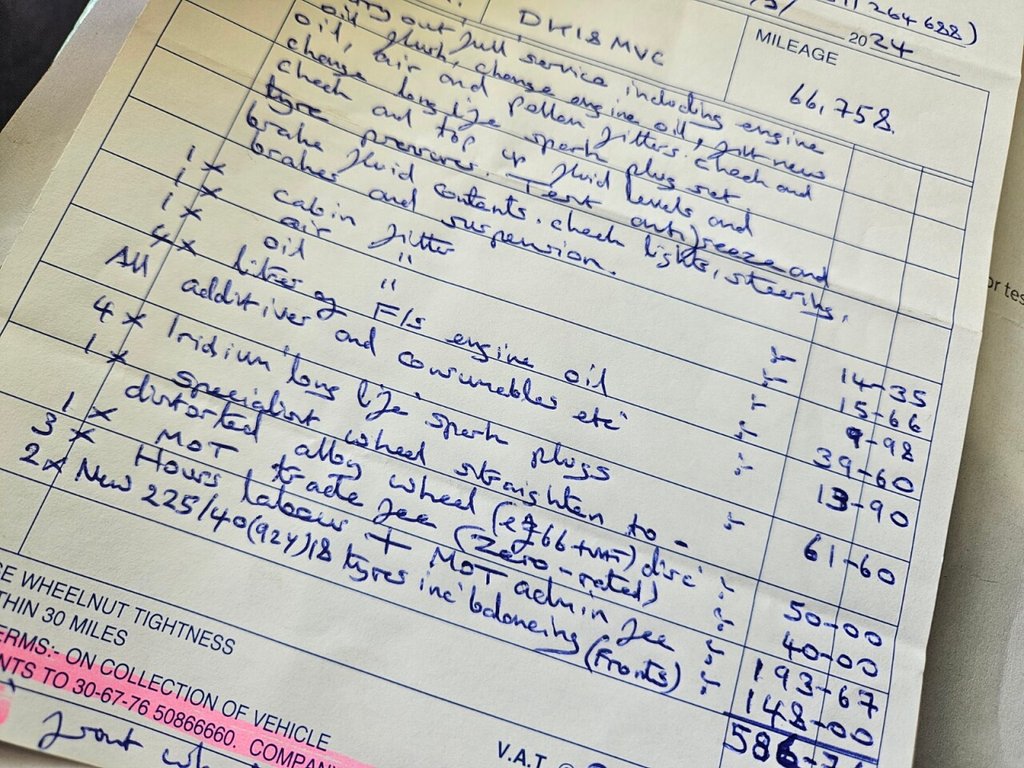 264688)
DK18 MVC
2024
MILEAGE
66,758.
out full service including engine
oil flush, change engine oil, fit new
oil, air and pollen filters. check and
change long life spark plug set.
check and top up fluid levels and
tyre pressures. Test antifreeze and
brake fluid contents. check lights, steering,
brakes and suspension.
1 x cabin filter 14-35
1 x air " 15-66
1 x oil " 9-98
4 x litres of F/s engine oil 39-60
All additives and consumables etc 13-90
4 x Iridium 'long life' spark plugs 61-60
1 x specialist wheel straighten to -
distorted alloy wheel ( £66+VAT) disc' 50-00
1 x MOT trade fee (Zero-rated) 40-00
3 x Hours labour + MOT admin fee 193-67
2 x New 225/40(92Y)18 tyres inc balancing (fronts) 148-00
586-
WHEELNUT TIGHTNESS
30 MILES
:- ON COLLECTION OF VEHICLE
TO 30-67-76 50866660.
V.A.T
front